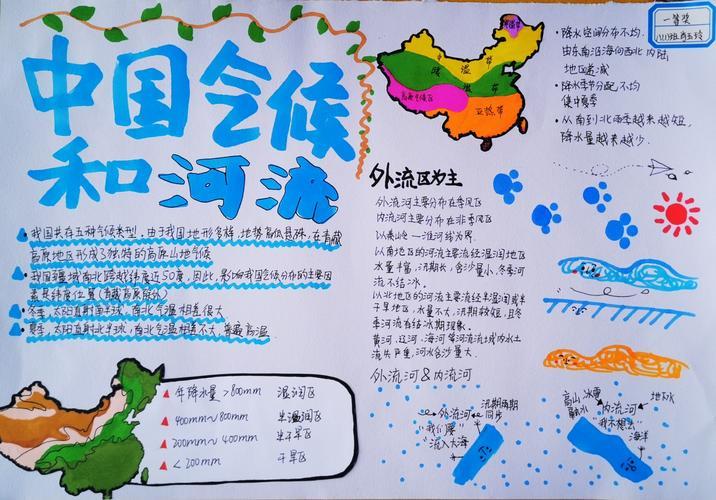 中国气候
和河流
一等奖
我国共存五种气候类型，由于我国地形多样，地势高低悬殊，在青藏
高原地区形成了独特的高原山地气候
我国疆域南北跨越纬度近50度，因此，影响我国气候分布的主要因
素是纬度位置(青藏高原除外)
冬季，太阳直射南半球，南北气温相差很大
夏季，太阳直射北半球，南北气温相差不大，普遍高温
年降水量>800mm 湿润区
400mm~800mm 半湿润区
200mm~400mm 半干旱区
<200mm 干旱区
温 带
暖 温 带
亚热带
高原气候区
降水空间分布不均.
由东南沿海向西北内陆
地区递减
降水季节分配不均
集中夏季
从南到北雨季越来越短,
降水量越来越少.
外流区为主
外流河主要分布在季风区
内流河主要分布在非季风区
以秦岭—淮河线为界.
以南地区的河流主要流经湿润地区
水量丰富，汛期长，含沙量小，冬季河
流不结冰.
以北地区的河流主要流经半湿润或半
干旱地区，水量不大，汛期较短，且冬
季河流有结冰期现象.
黄河，辽河，海河等河流流域内水土
流失严重，河水含沙量大.
外流河&内流河
外流河
汛期两期
同步
"我们要
流入大海"
高山 冰雪
融水
内流河
地下水
"我不想去"
海洋